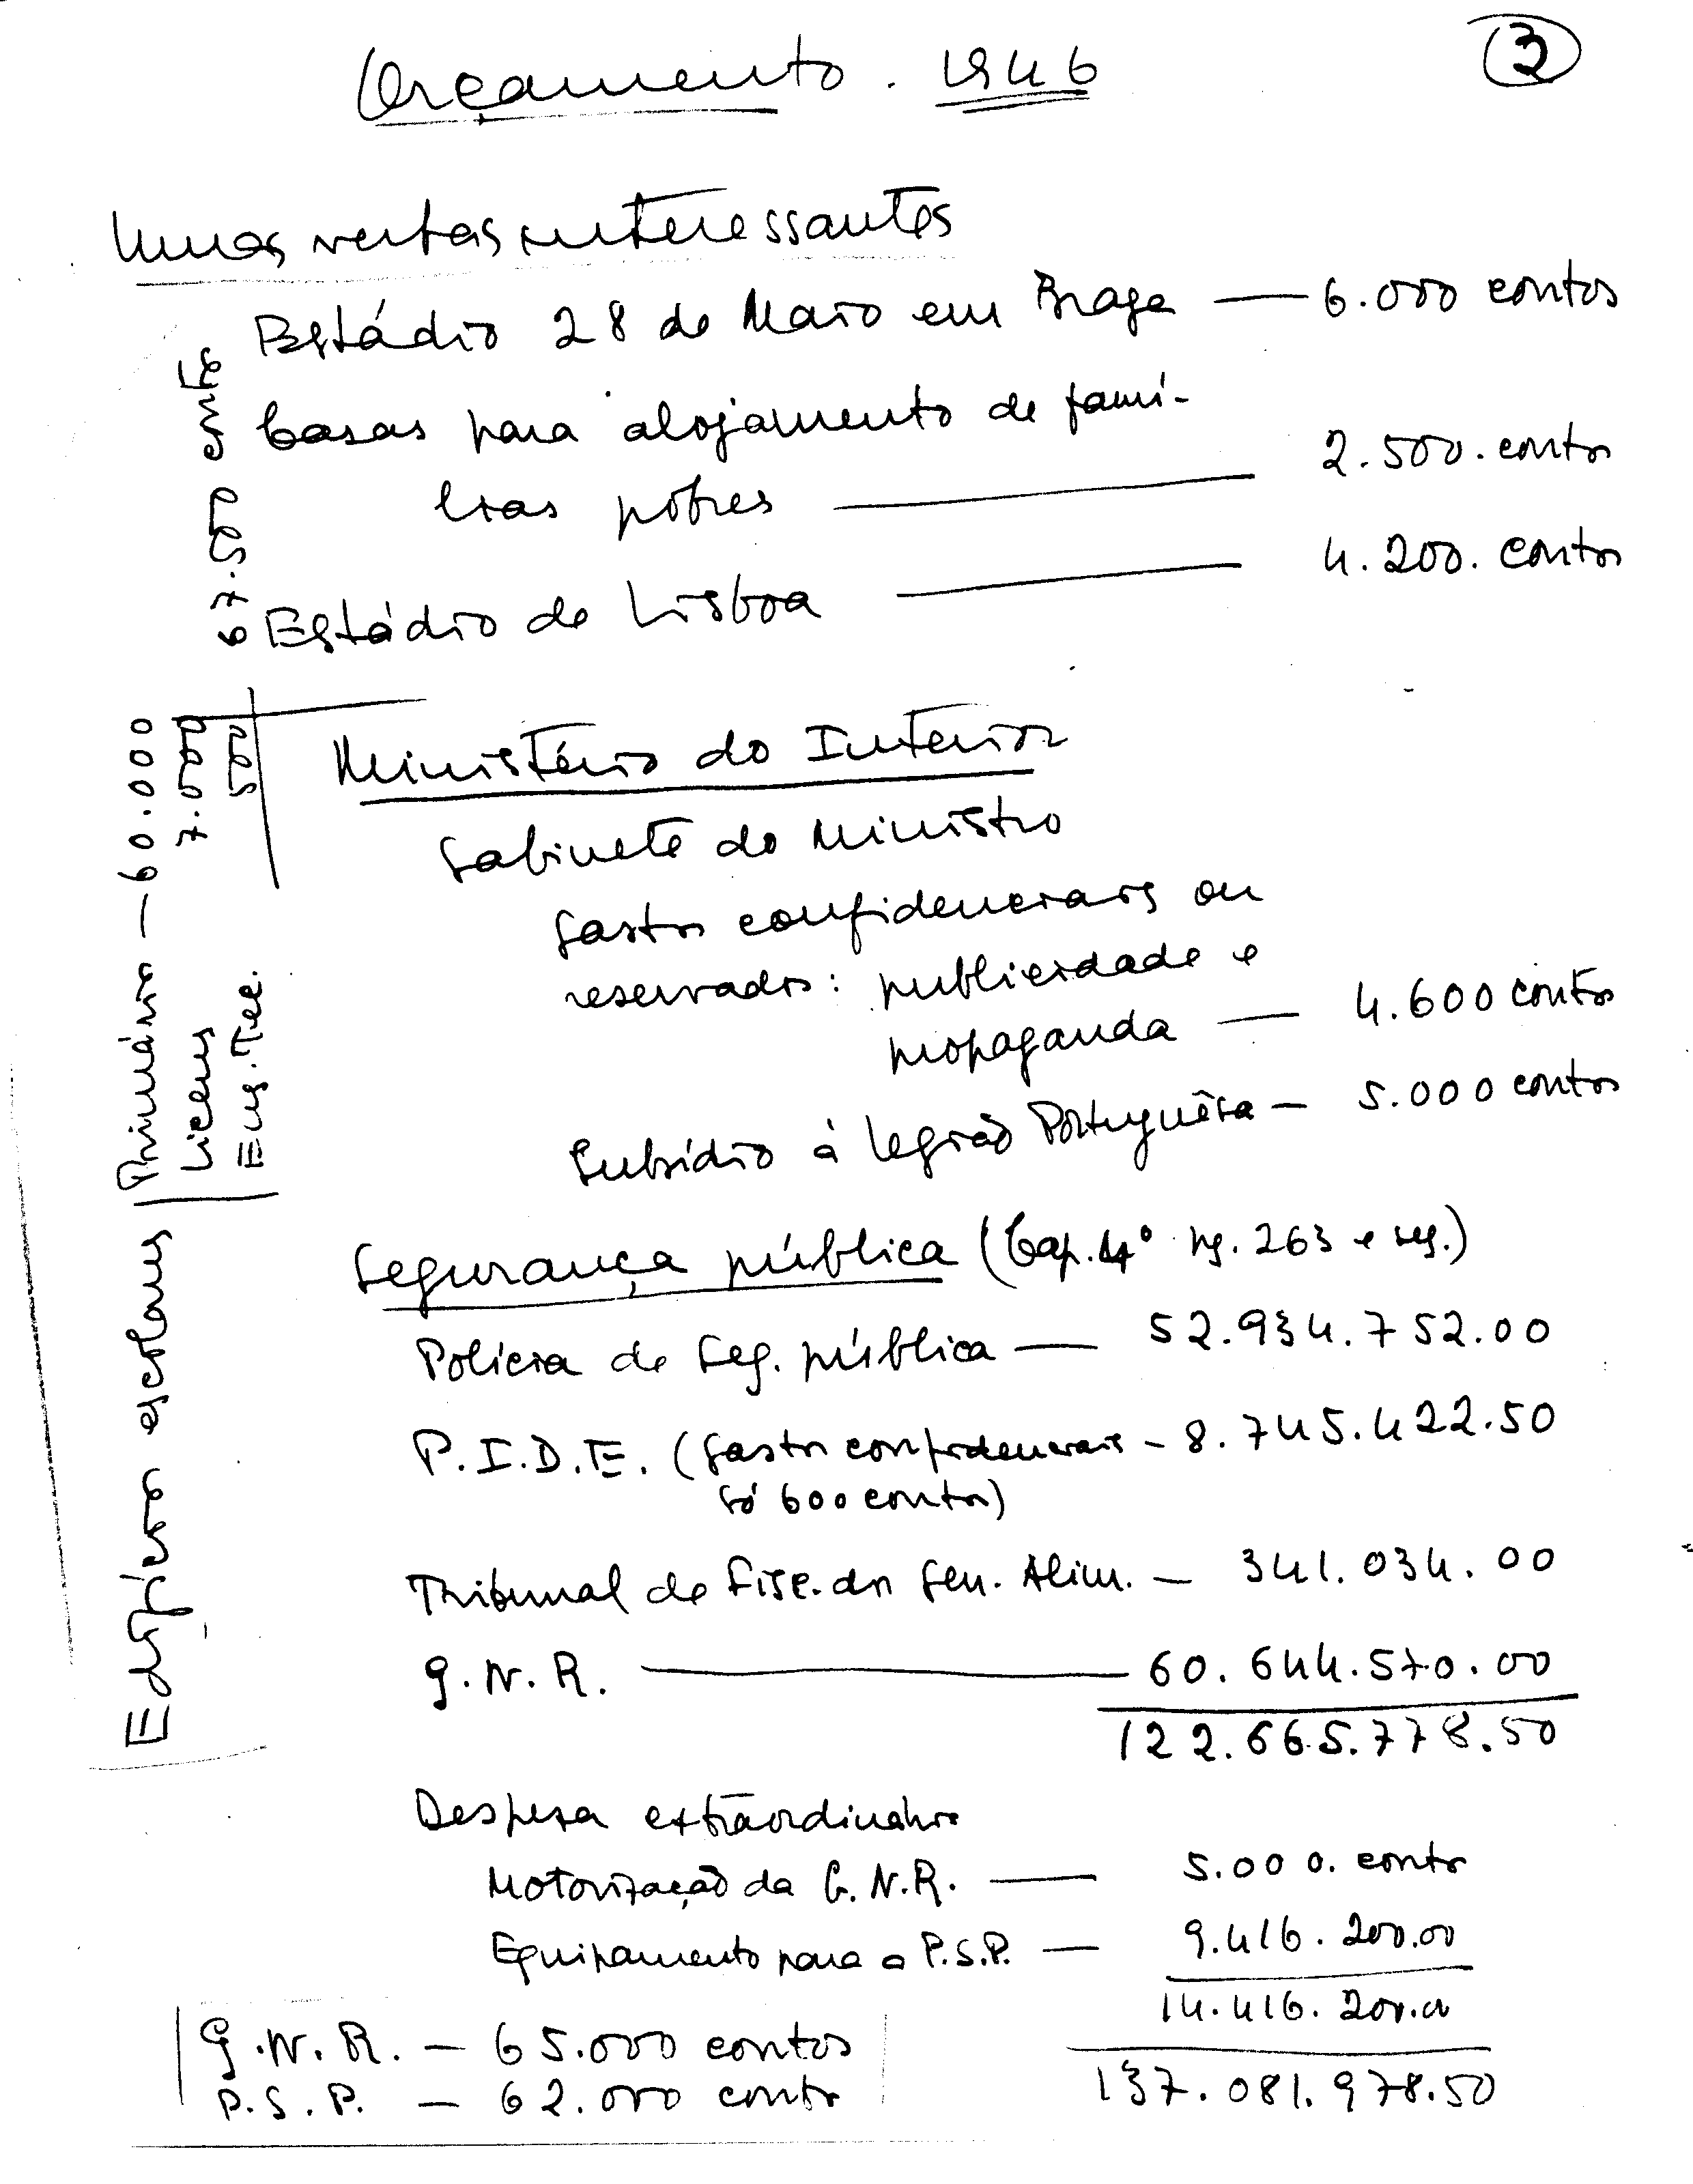 Orçamento. 1946
3
Umas verbas interessantes
Estádio 28 de Maio em Braga — 6.000 contos
Casas para alojamento de famí-
lias pobres — 2.500. contos
Estádio de Lisboa — 4.200. contos
Ministério do Interior
Gabinete do Ministro
Gastos confidenciais ou
reservados: publicidade e
propaganda — 4.600 contos
Subsídio à Legião Portuguêsa — 5.000 contos
Segurança pública (Cap. 4º pg. 263 e seg.)
Polícia de Seg. pública — 52.934.752.00
P.I.D.E. (Gastos confidenciais - 8.745.422.50
só 600 contos)
Tribunal de Fisc. dos Gen. Alim. — 341.034.00
G.N.R. — 60.644.570.00
122.665.778.50
Despesa extraordinária
Motorização da G.N.R. — 5.000. contos
Equipamento para a P.S.P. — 9.416.200.00
14.416.200.00
137.081.978.50
G.N.R. — 65.000 contos
P.S.P. — 62.000 contos
Edifícios escolares
Primário — 60.000
Liceus 7.000
Ens. Tec. 500
67.500 contos